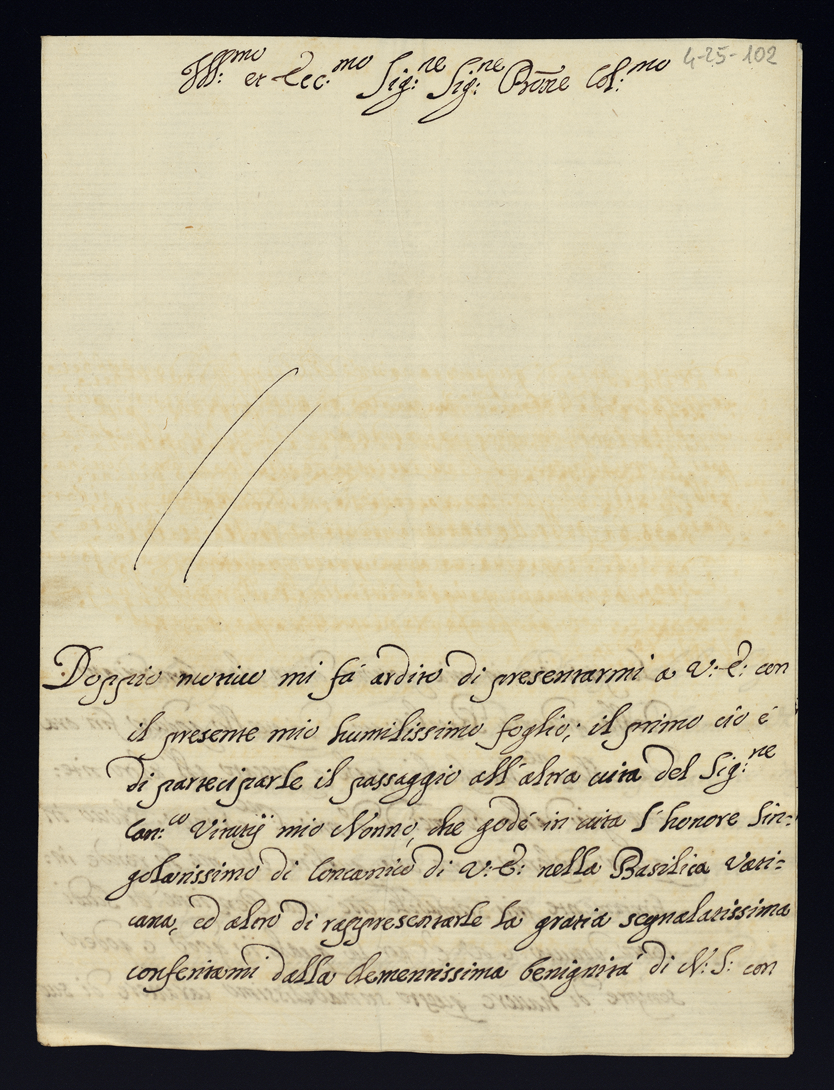 Ill:mo et Ecc:mo Sig:re Sig:re Prone Col:mo
4-25-102
Doppio motivo mi fà ardito di presentarmi a V: E: con
il presente mio humilissimo foglio; il primo ciò é
di parteciparle il passaggio all'altra vita del Sig:re
Can:co mio Nonno, che godé in vita l'honore Sin=
golarissimo di Concanico di V: E: nella Basilica Vati=
cana, ed altro di rappresentarle la gratia segnalatissima
conferitami dalla clementissima benignità di N: S: con